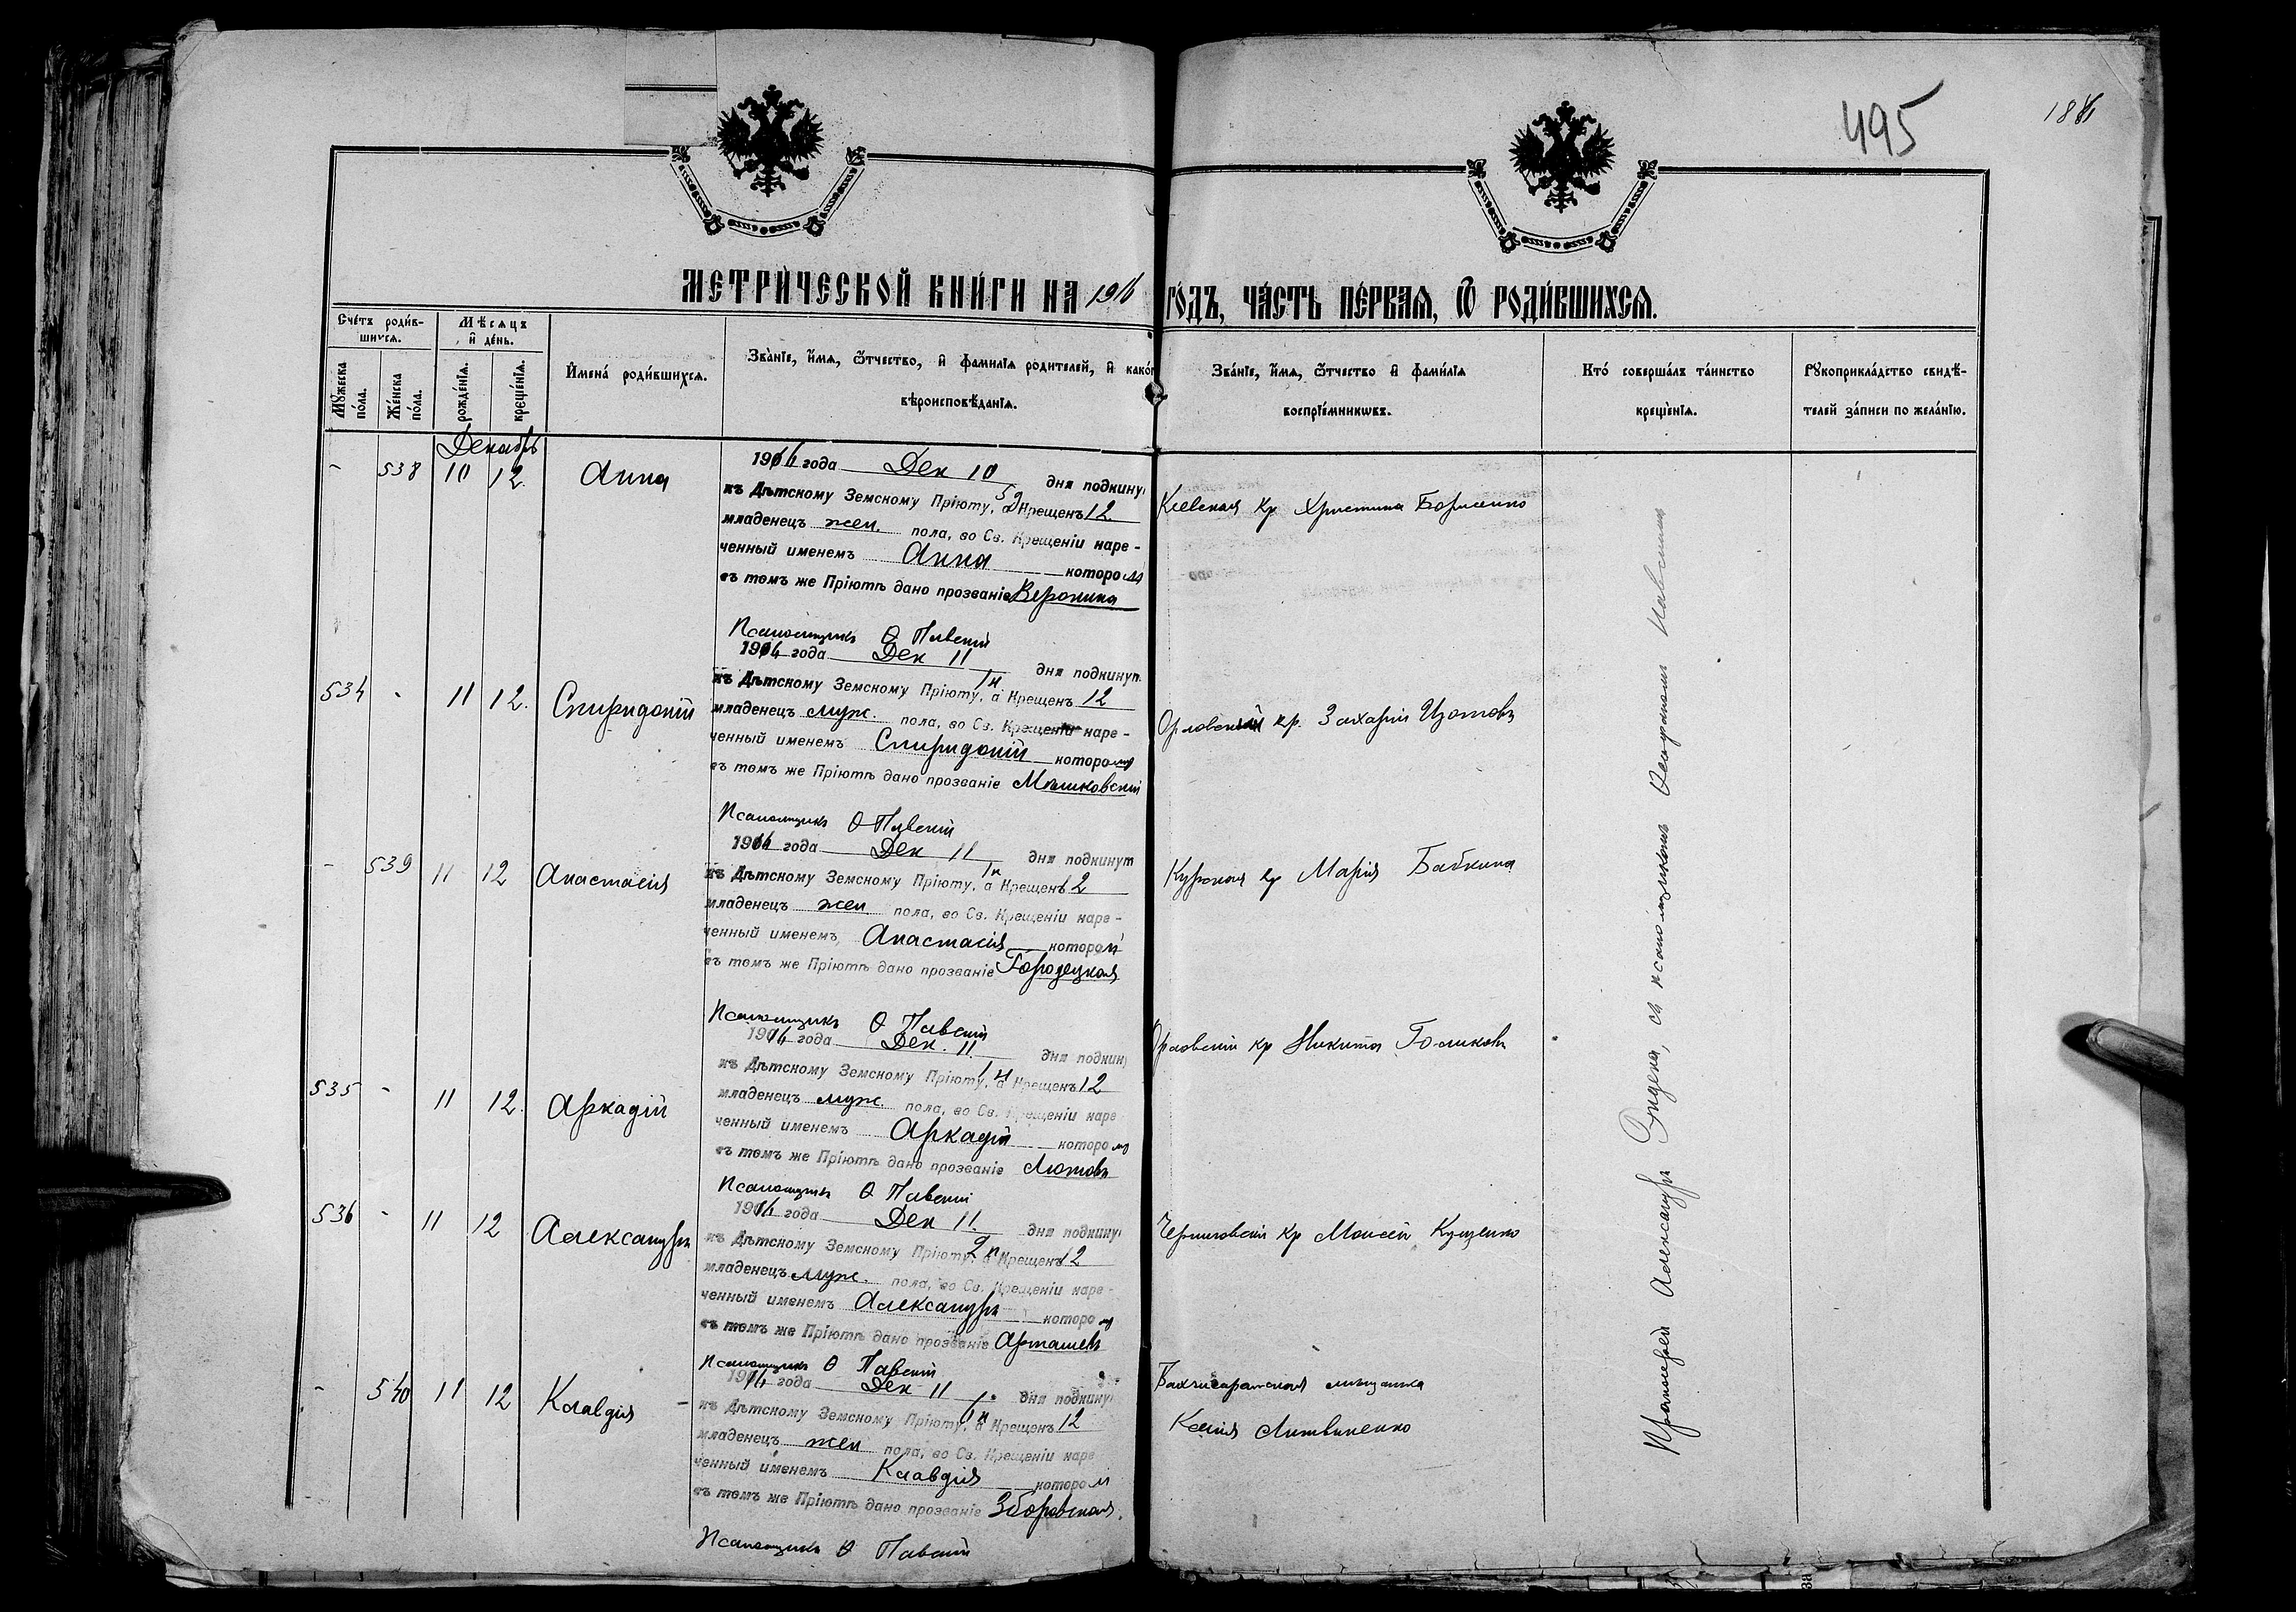 495
МЕТРИ́ЧЕСКОЙ КНИ́ГИ НА 1916 ГО́ДЪ, ЧА́СТЬ ПЕ́РВАЯ, Ѿ РОДИ́ВШИХСЯ.
Сче́тъ роди́в-
шихся.
Мѣсяцъ
и҆ де́нь.
Мꙋжеска по́ла.
Же́нска по́ла.
рожде́нїя.
креще́нїя.
И҆мена̀ роди́вшихся.
Зва́нїе, и҆́мя, ѻ҆́тчество, и҆ фамилїѧ родителей, и҆ како́г
вѣроисповѣ́данїя.
Зва́нїе, и҆́мя, ѻ҆́тчество и҆ фами́лїя
воспрїе́мникѡвъ.
Кто́ соверша́лъ та́инство
креще́нїя.
Рꙋкоприкла́дство свидѣ́-
телей за́писи по жела́нїю.
Декабрь
- 538 10 12. Анна
1916 года Дек 10 дня подкину
къ Дѣтскому Земскому Пріюту, а Крещенъ 12
младенецъ жен. пола, во Св. Крещеніи наре-
ченный именемъ Анна которой
въ томъ же Пріютѣ дано прозваніе Веронина
Псаломщикъ Ѳ Павскій
Киевская кр Христина Борисенко
534 - 11 12. Спиридоній
1916 года Дек 11 дня подкинут
къ Дѣтскому Земскому Пріюту, а Крещенъ 12
младенецъ муж. пола, во Св. Крещеніи наре-
ченный именемъ Спиридоній которому
въ томъ же Пріютѣ дано прозваніе Мошковскій
Псаломщикъ Ѳ Павскій
Орловскій кр. Захарій Изотовъ
- 539 11 12 Анастасія
1916 года Дек 11 дня подкинут
къ Дѣтскому Земскому Пріюту, а Крещенъ 12
младенецъ жен пола, во Св. Крещеніи наре-
ченный именемъ Анастасія которой
въ томъ же Пріютѣ дано прозваніе Городецкая
Псаломщикъ Ѳ Павскій
Курская кр Марія Бабкина
535 - 11 12. Аркадій
1916 года Дек. 11 дня подкин
къ Дѣтскому Земскому Пріюту, а Крещенъ 12
младенецъ муж. пола, во Св. Крещеніи наре
ченный именемъ Аркадій которому
въ томъ же Пріютѣ дано прозваніе Лютовъ
Псаломщикъ Ѳ Павскій
Орловскій кр Никита Голиковъ
536 - 11 12 Александръ
1916 года Дек 11. дня подкину
къ Дѣтскому Земскому Пріюту, а Крещенъ 12
младенецъ муж. пола, во Св. Крещеніи наре-
ченный именемъ Александръ которому
въ томъ же Пріютѣ дано прозваніе Арташевъ
Псаломщикъ Ѳ Павскій
Черниговскій кр Моисей Куценко
- 540 11 12 Клавдія
1916 года Дек 11 дня подкину
къ Дѣтскому Земскому Пріюту, а Крещенъ 12
младенецъ жен пола, во Св. Крещеніи наре
ченный именемъ Клавдія которой
въ томъ же Пріютѣ дано прозваніе Зборовская.
Псаломщикъ Ѳ Павскій
Бахчисарайская мѣщанка
Ксенія Литвиненко
Протоіерей Александръ съ псаломщикомъ Ѳеофаномъ Павскимъ